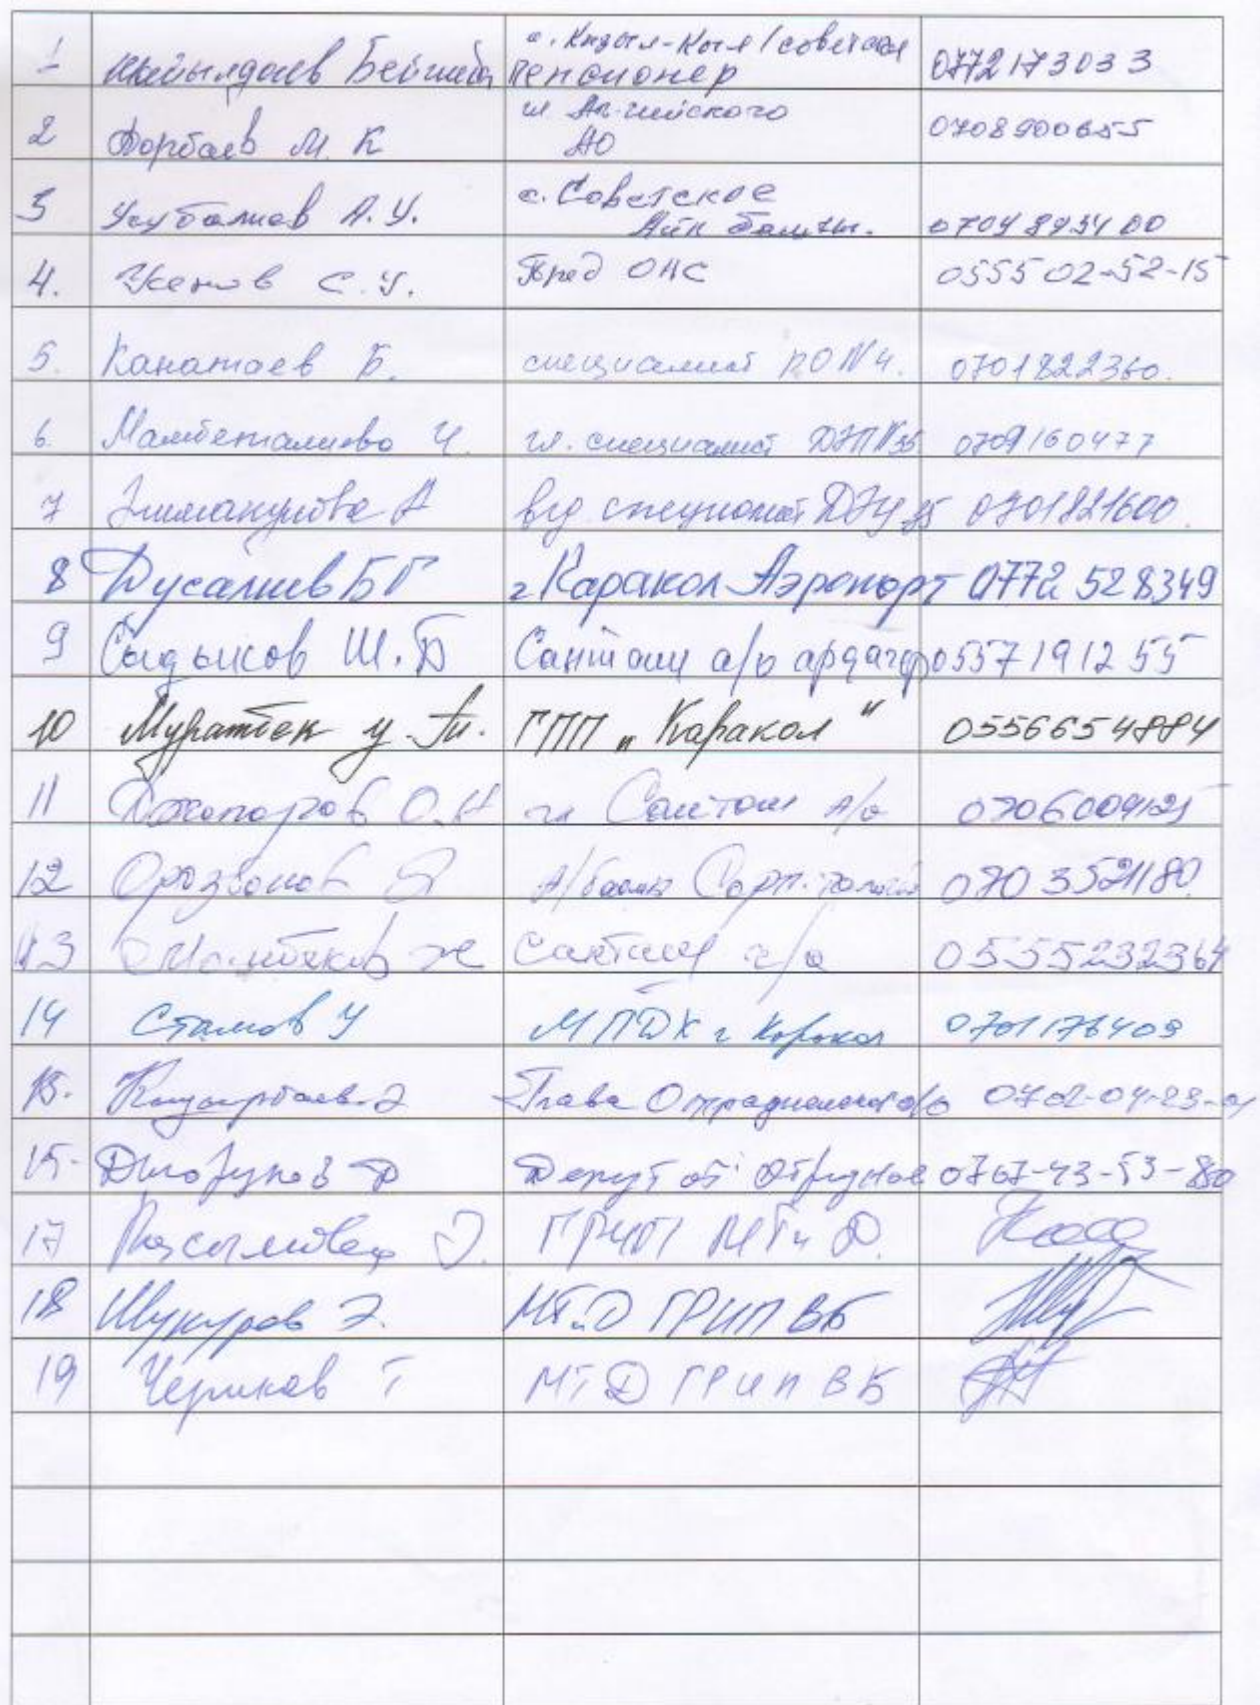 1 Кыйылдаев Бейшеб с. Кызыл-Кыя /советская пенсионер 0772173033
2 Борбаев М. К гл. Ак-чийского АО 0708900655
3 Усубалиев А.У. с. Советское Айк башчы. 0704893400
4. Усенов С.У. Пред ОКС 0555 02-52-15
5. Канатаев Б. специалист РО №4. 0701822360.
6. Мамбеталиева Ч. гл. специалист ДЭП №35 0709160477
7 А вед специалист ДЭУ 35 0701821600.
8 Дусалиев Б Г г Каракол Аэропорт 0772 528349
9 Садыков Ш.Б Санташ а/о ардагер 0557191255
10 Муратбек у. ГПП „Каракол" 0556654884
11 Джапаров О.К гл Санташ А/о
12 Орозбаков А/башы 0703521180
13 Мамбеков Ж Санташ а/о 0555232364
14 Стамов У МПДК г Каракол 0701176409
15. Кыдырбаев Э Глава Отрадненского а/о 0702-04-23-
15. Депутат Отрадное 0767-43-53-80
17 Э. ГРИП МТиД.
18 Шукуров Э. МТиД ГРИП ВБ
19 Чериков Т МТД ГРИП ВБ